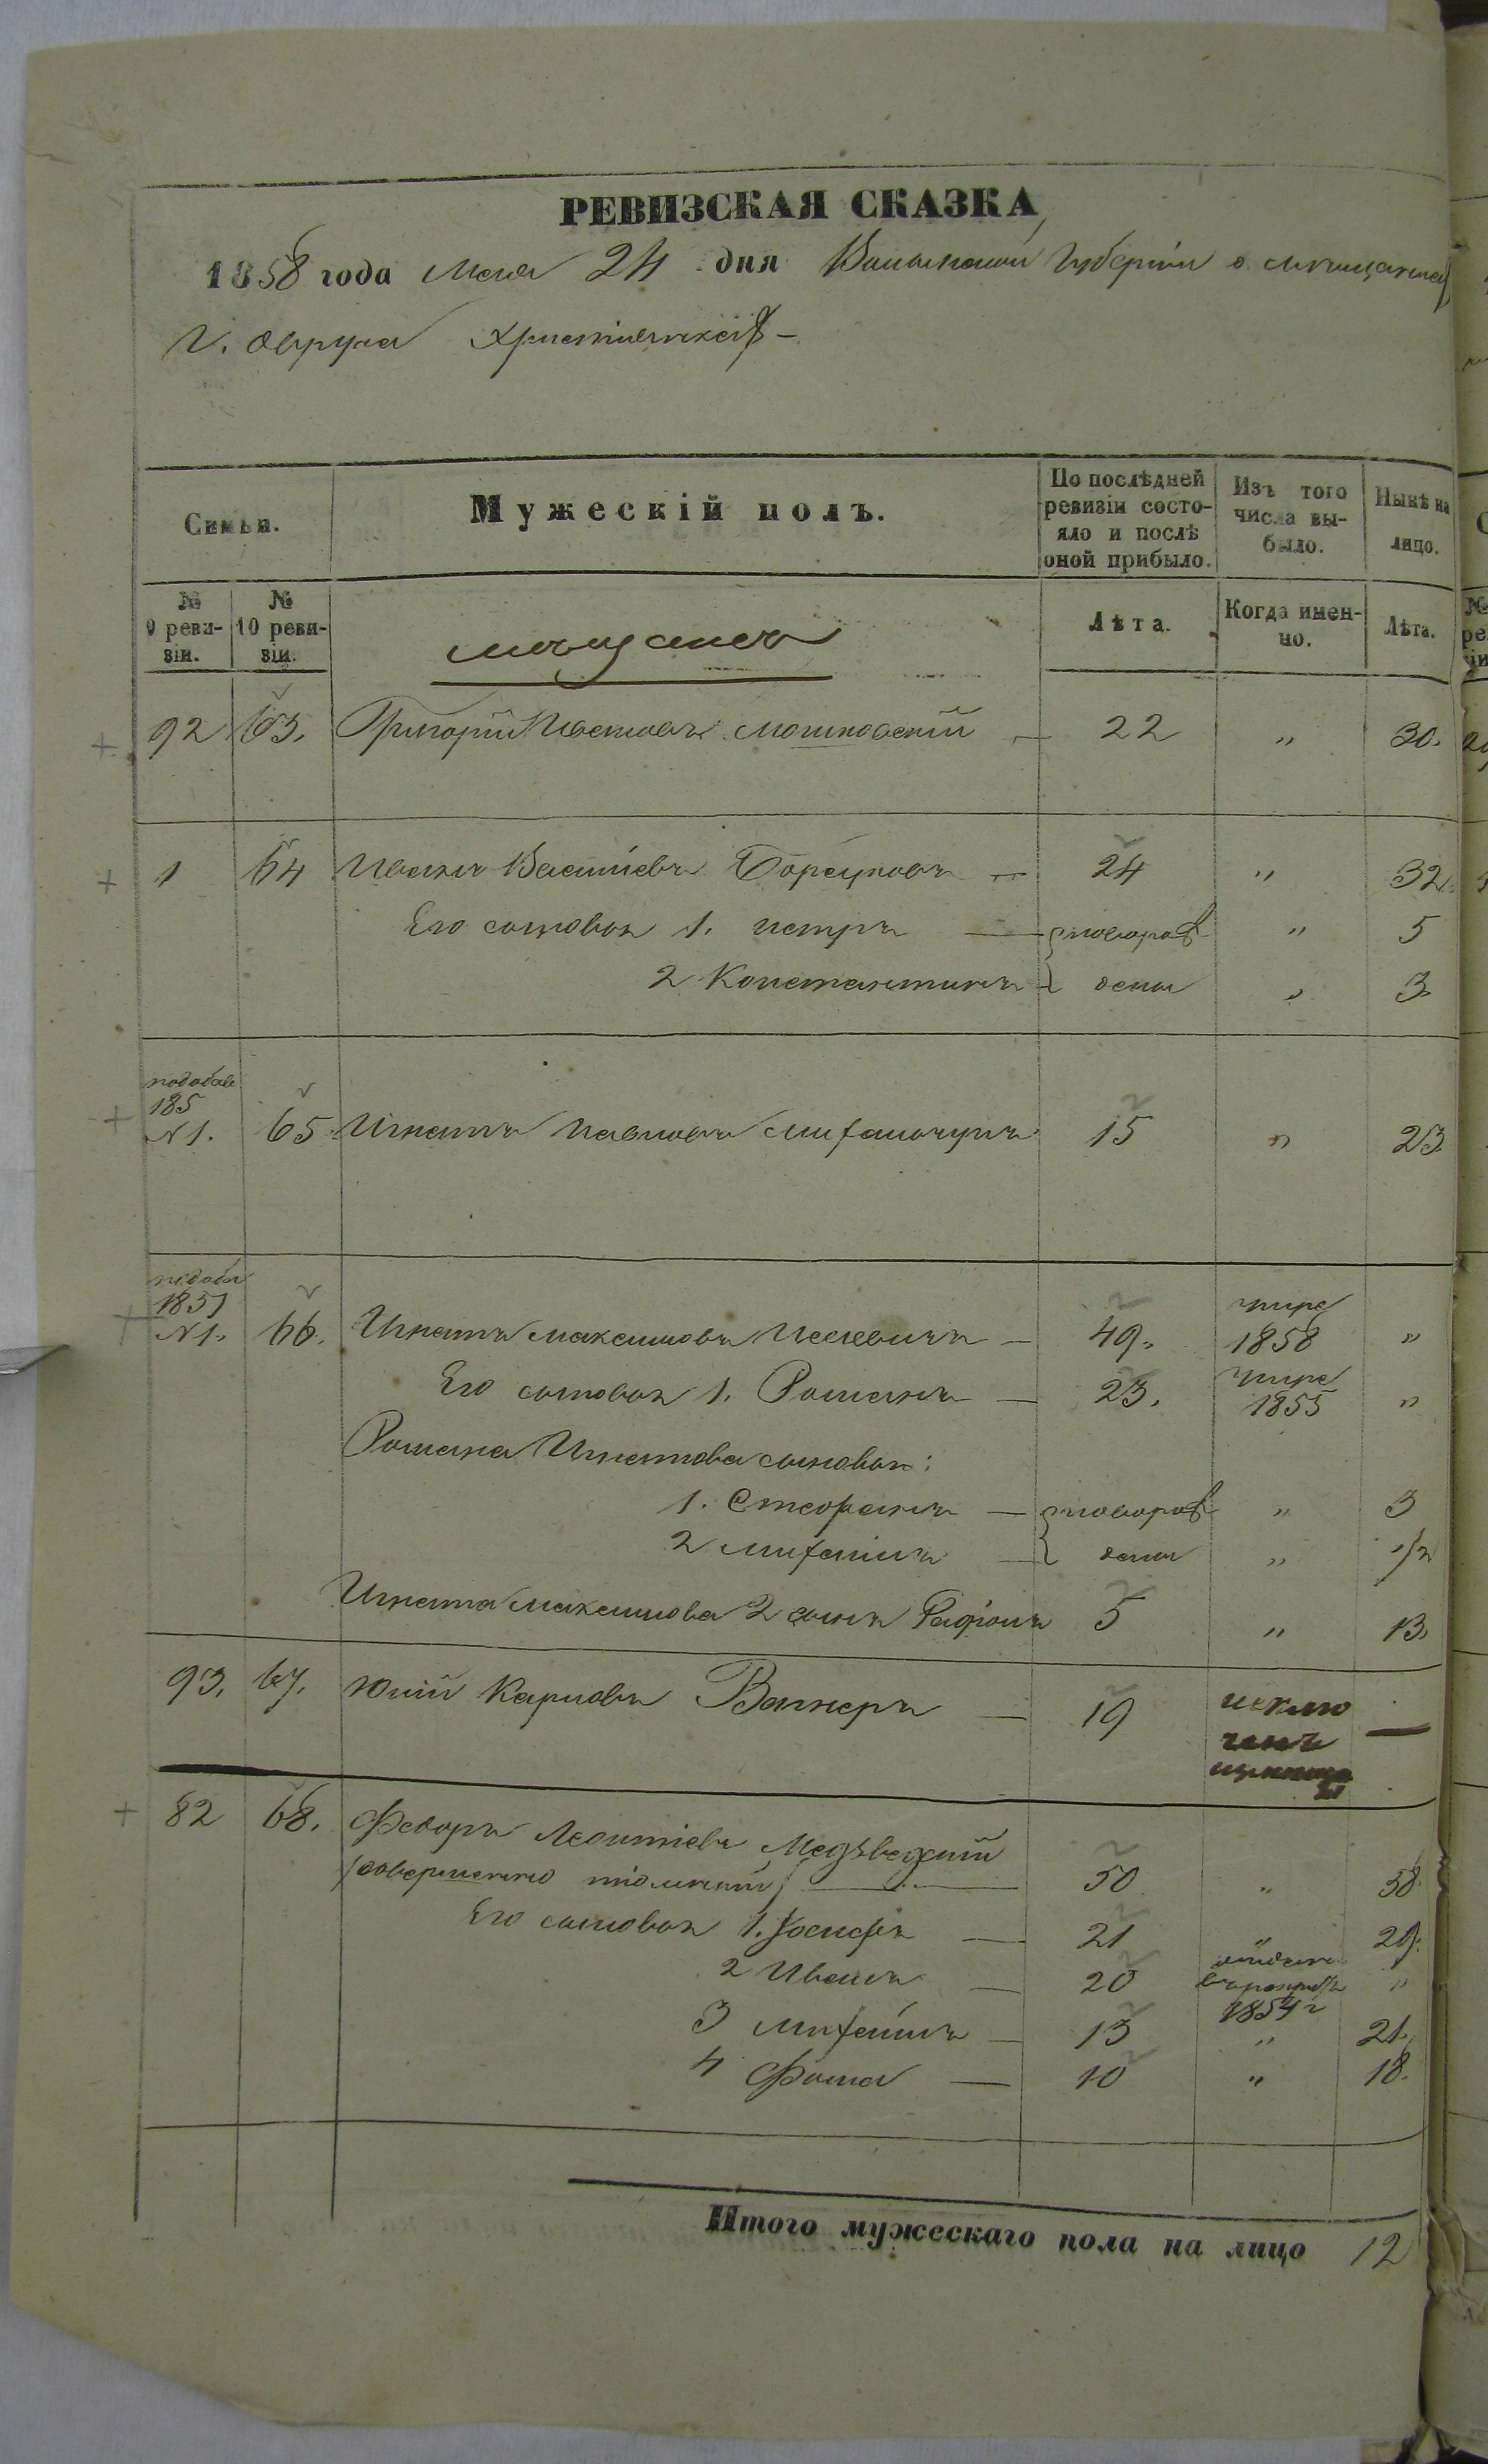 РЕВИЗСКАЯ СКАЗКА
1858 года Мая 24 дня Волынской Губернии о мещанахъ
г. Овруча Христианахъ –
Семьи.
Мужескій полъ.
По послѣдней ревизіи состояло и послѣ оной прибыло.
Изъ того числа выбыло.
Нынѣ на лицо.
№ 9 ревизіи.
№ 10 ревизіи.
мещане
Лѣта.
Когда именно.
Лѣта.
92 63. Григорій Мошковскій – 22 " 30.
1 64 Иванъ Васильевъ – 24 " 32
Его сыновья 1. Петръ – новорож " 5
2 Константинъ дены " 3
185
N 1. 65 Игнатъ Павловъ 15 " 23
1857
N 1. 66. Игнатъ Максимовъ – 49. умре 1858 "
Его сыновья 1. Романъ – 23. умре 1855 "
Романа Игнатова сыновья:
1. Стефанъ – новорож " 3
2 Михаилъ – дены " 1/2
Игната Максимова 2 сынъ Радіонъ 5 " 13.
93. 67. Юлій Карловъ Вагнеръ – 19 исклю
ченъ —
82 68. Федоръ Леонтіевъ Медвѣдскій
50 " 58
Его сыновья 1. Іосифъ – 21 29.
2 Иванъ – 20 1854 г "
3 Михаилъ – 13 " 21.
4 Фома – 10 " 18.
Итого мужескаго пола на лицо 12